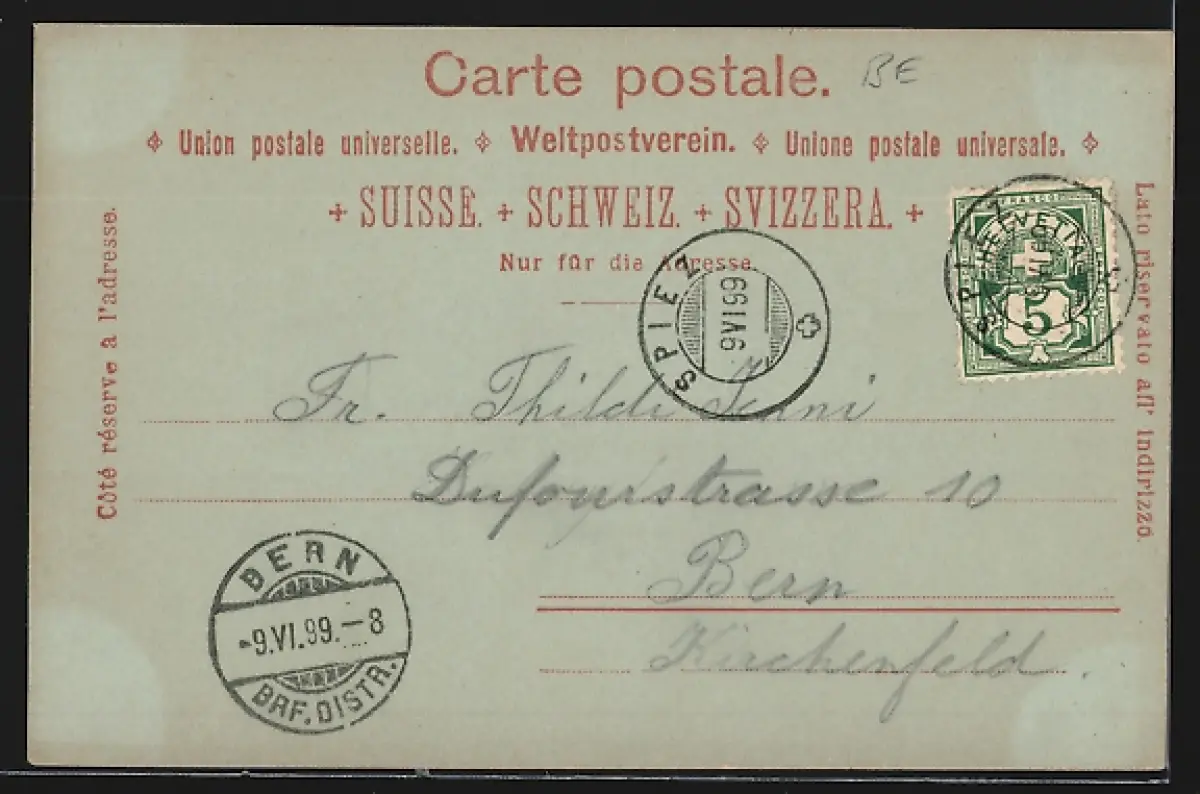 Carte postale. BE
Union postale universelle. Weltpostverein. Unione postale universale.
+ SUISSE. + SCHWEIZ. + SVIZZERA. +
Nur für die Adresse.
Côté réservé à l'adresse.
Lato riservato all' indirizzo.
SPIEZ
HELVETIA
5
SPIEZ
9 VI 99
Fr. Thilde
Dufourstrasse 10
Bern
Kirchenfeld.
BERN
-9.VI.99.-8
BRF. DISTR.